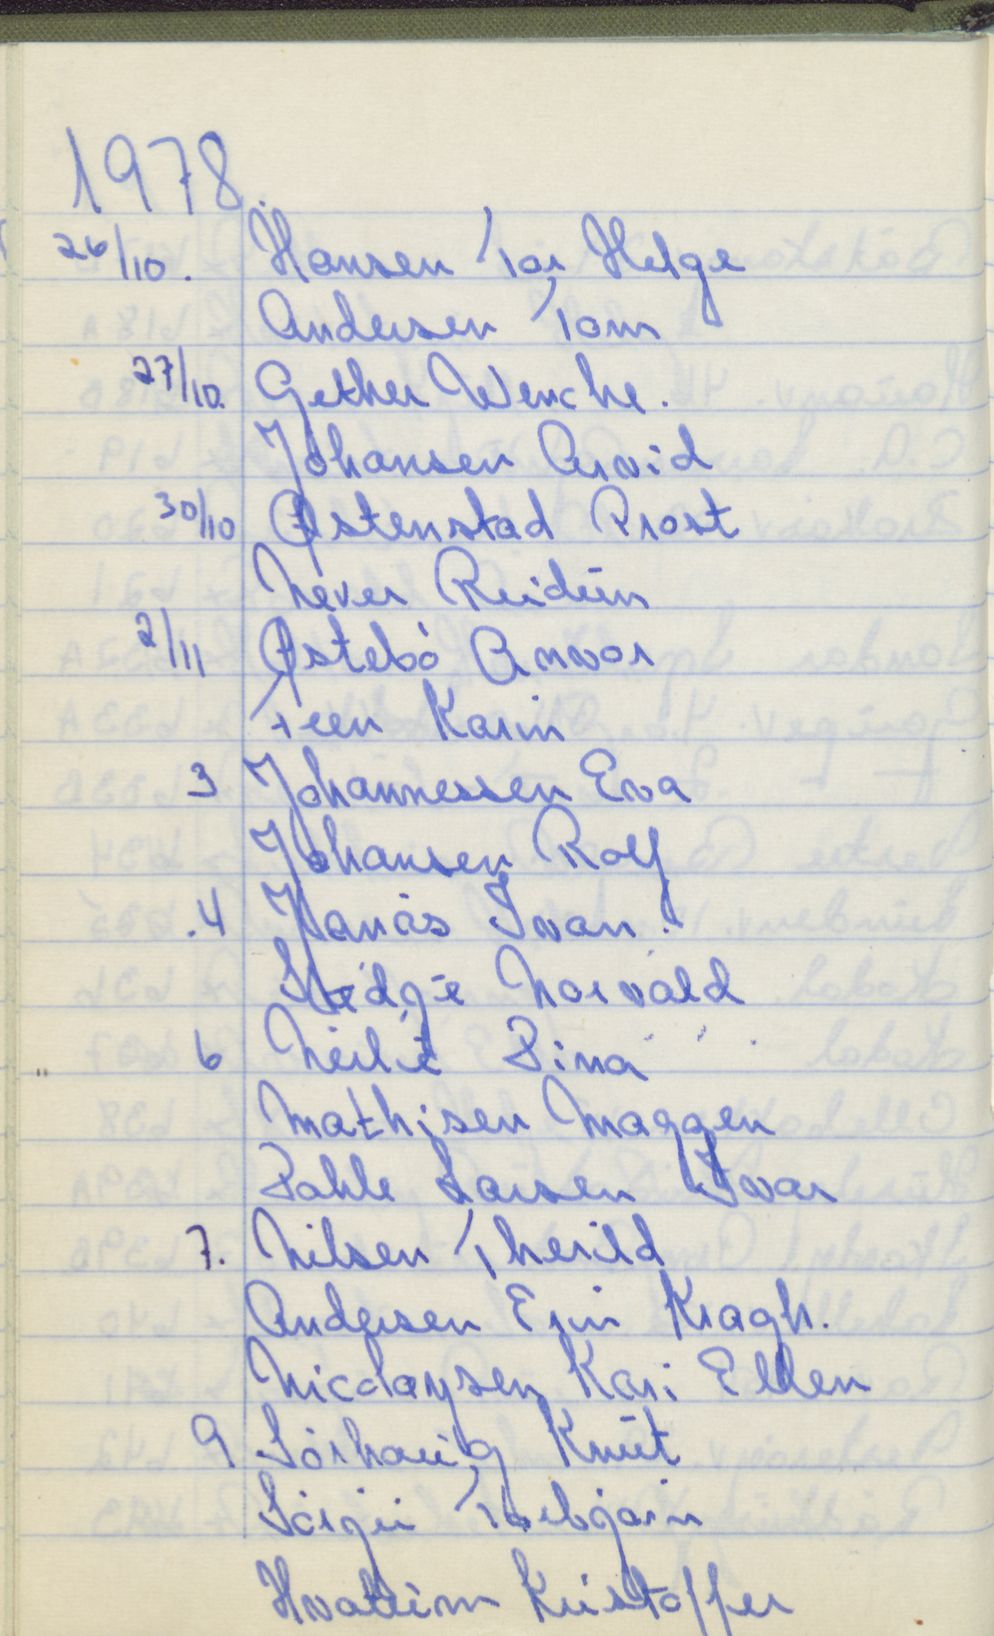 1978
26/10. Hansen Tor Helge
Andersen Tom
27/10. Gether Wenche.
Johansen Arvid
30/10 Østenstad Prost
Mever Reidun
2/11 Østebö Anvor
Teen Karin
3 Johannessen Eva
Johansen Rolf
.4 Hanås Ivan.
Norvald
6 Stina
Mathisen Maggen
Dahle Larsen Ivar
7. Nilsen Therild
Andersen Kragh.
Nicolaysen Kari Ellen
9 Sörhaug Knut
Torbjörn
Kristoffer